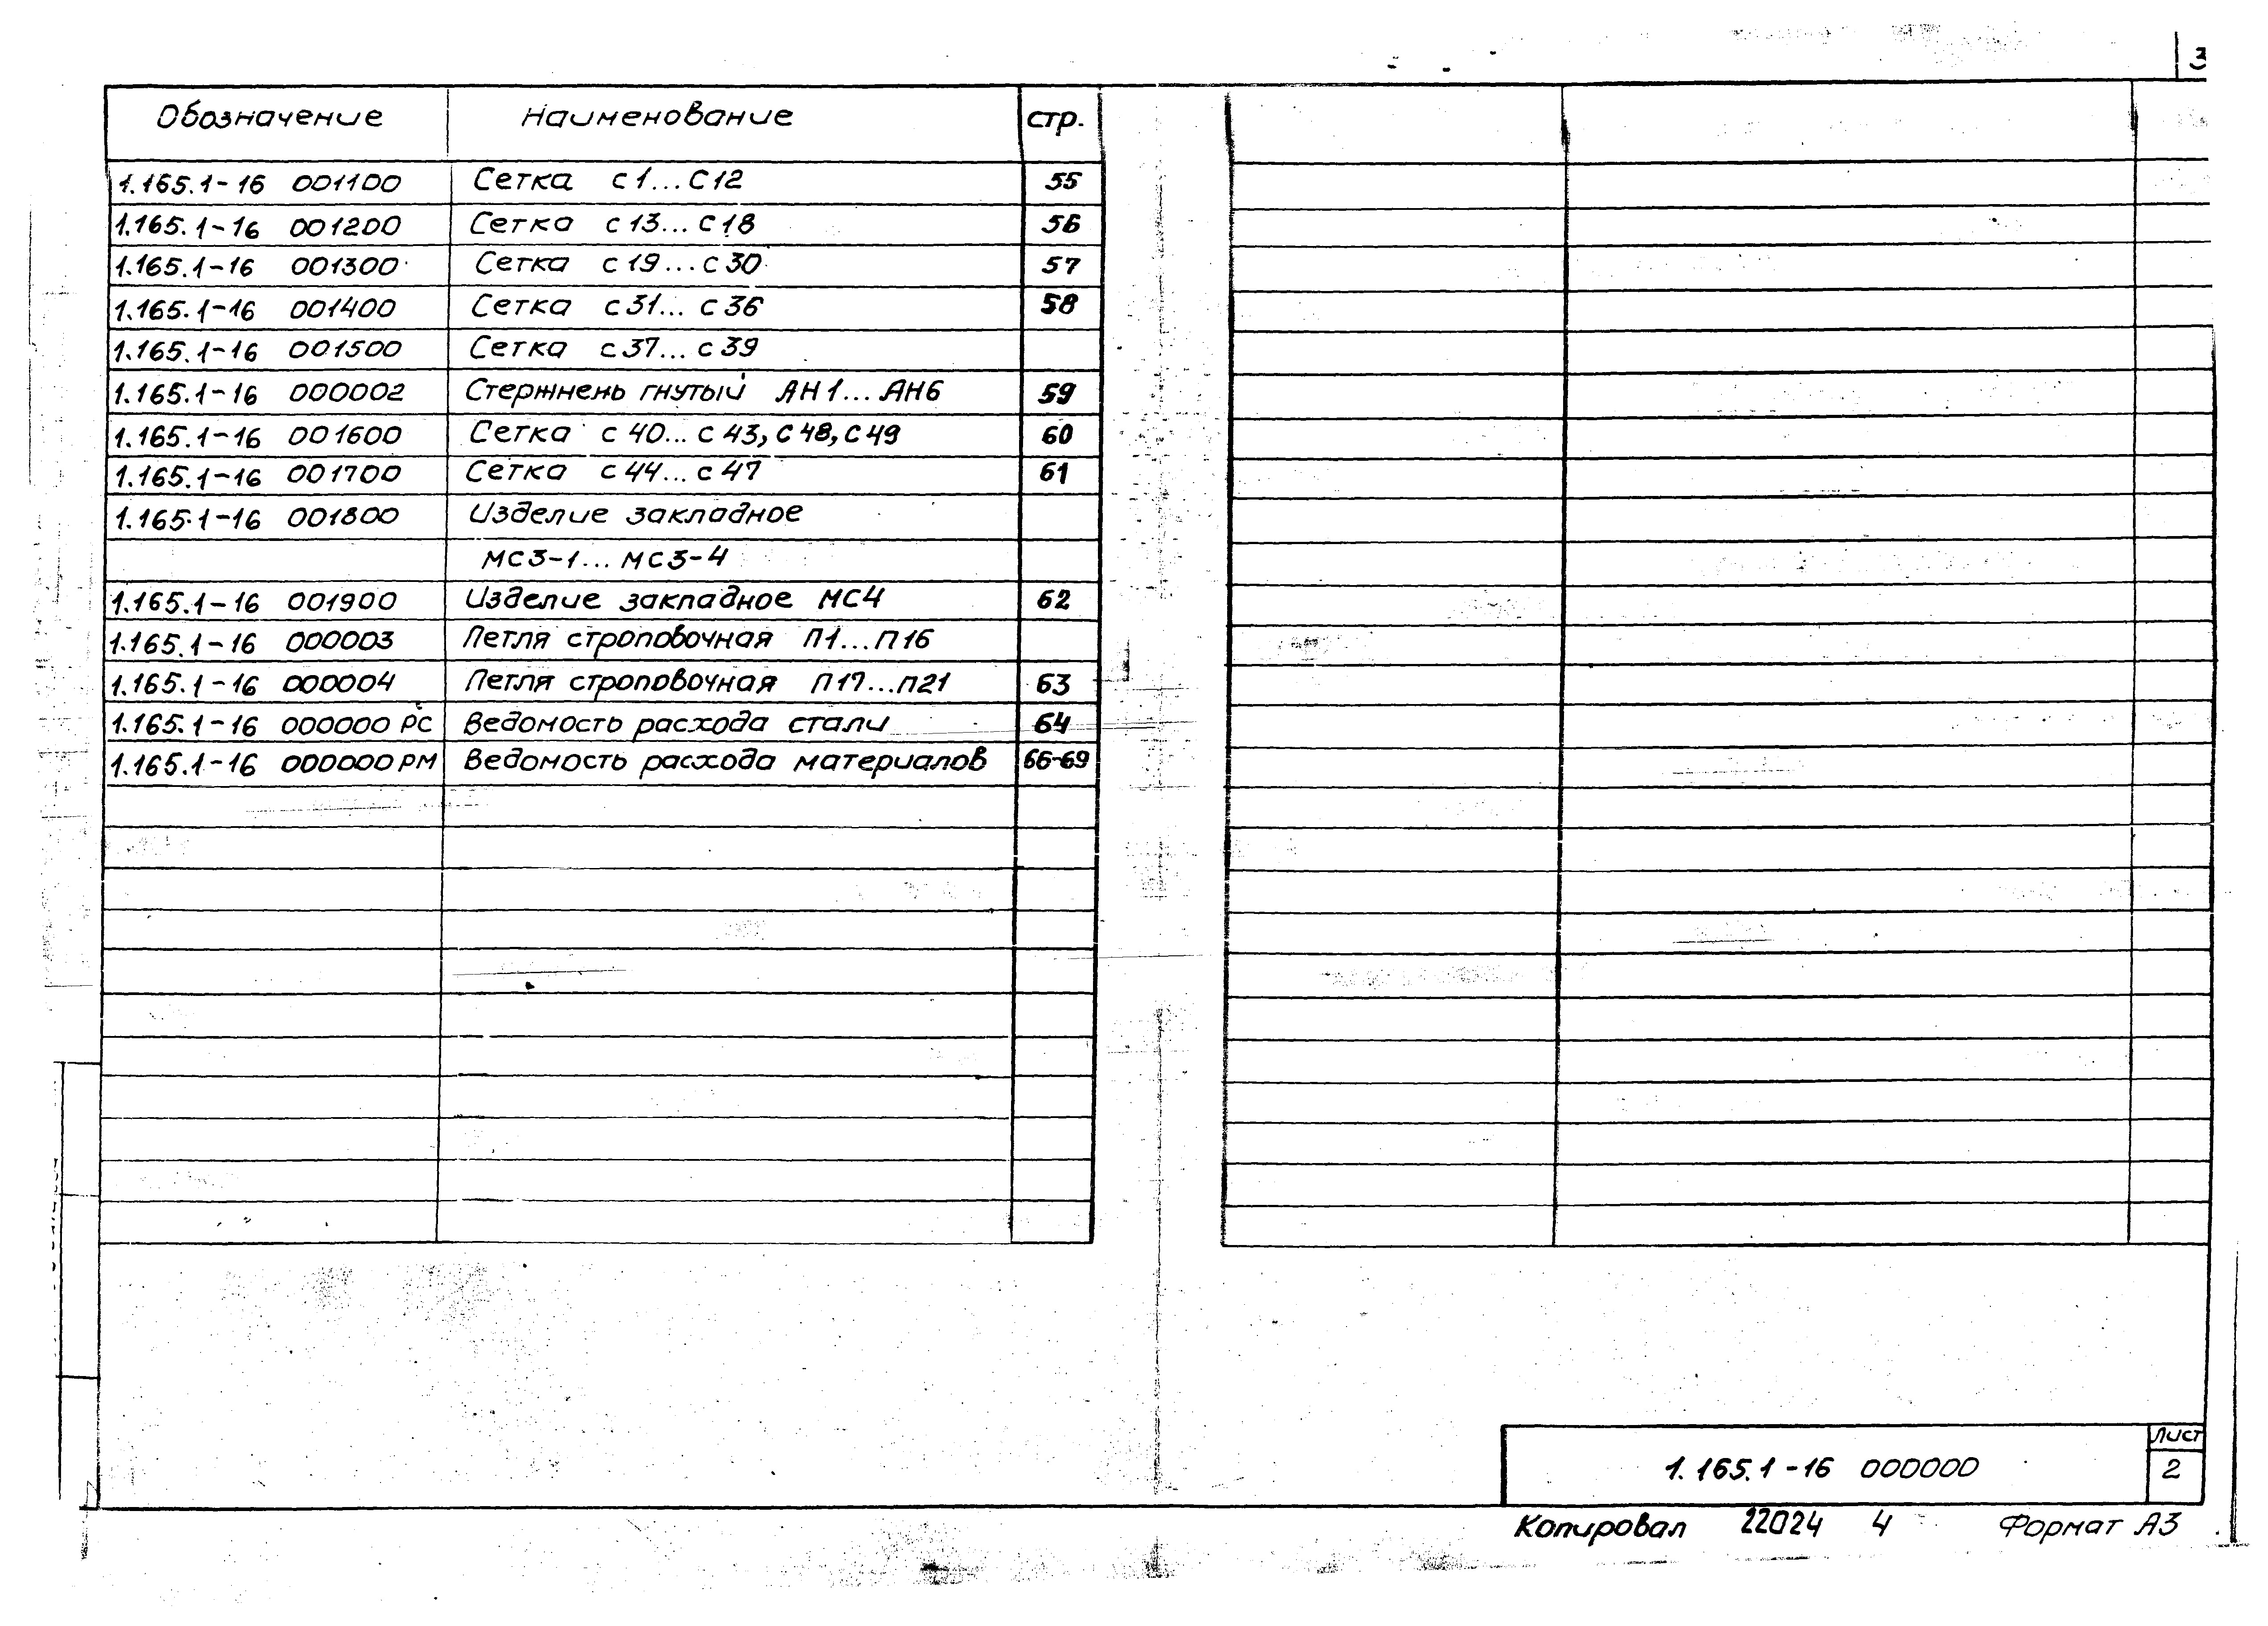 3
Обозначение Наименование стр.
1.165.1-16 001100 Сетка С1...С12 55
1.165.1-16 001200 Сетка С13...С18 56
1.165.1-16 001300 Сетка С19...С30 57
1.165.1-16 001400 Сетка С31...С36 58
1.165.1-16 001500 Сетка С37...С39
1.165.1-16 000002 Стержнень гнутый АН1...АН6 59
1.165.1-16 001600 Сетка С40...С43, С48, С49 60
1.165.1-16 001700 Сетка С44...С47 61
1.165.1-16 001800 Изделие закладное
МС3-1...МС3-4
1.165.1-16 001900 Изделие закладное МС4 62
1.165.1-16 000003 Петля строповочная П1...П16
1.165.1-16 000004 Петля строповочная П17...П21 63
1.165.1-16 000000 РС Ведомость расхода стали 64
1.165.1-16 000000 РМ Ведомость расхода материалов 66-69
Лист
1.165.1-16 000000 2
Копировал 22024 4 Формат А3